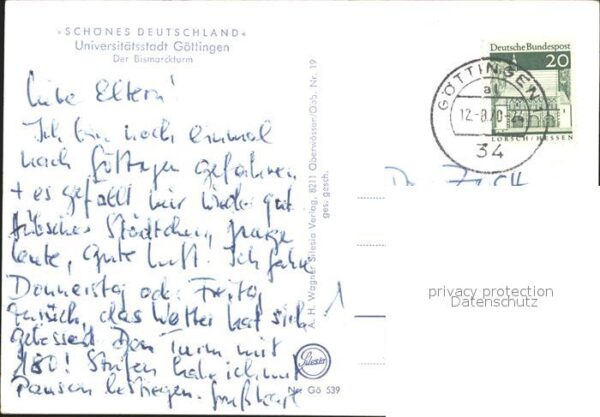 »SCHÖNES DEUTSCHLAND«
Universitätsstadt Göttingen
Der Bismarckturm
Liebe Eltern!
Ich bin noch einmal
nach Göttingen gefahren
+ es gefällt mir wieder gut
hübsches Städtchen, junge
Leute, gute Luft. Ich fahre
Donnerstag od. Freitag
zurück, das Wetter hat sich
gebessert. Den Turm mit
180! Stufen habe ich mit
Pausen bestiegen.
A. H. Wagner Silesia Verlag, 8211 Oberwössen/Obb. Nr. 19
ges. gesch.
Silesia
Nr. Gö 539
Deutsche Bundespost
20
LORSCH/HESSEN
GÖTTINGEN
al
12.-8.70-
34
privacy protection
Datenschutz